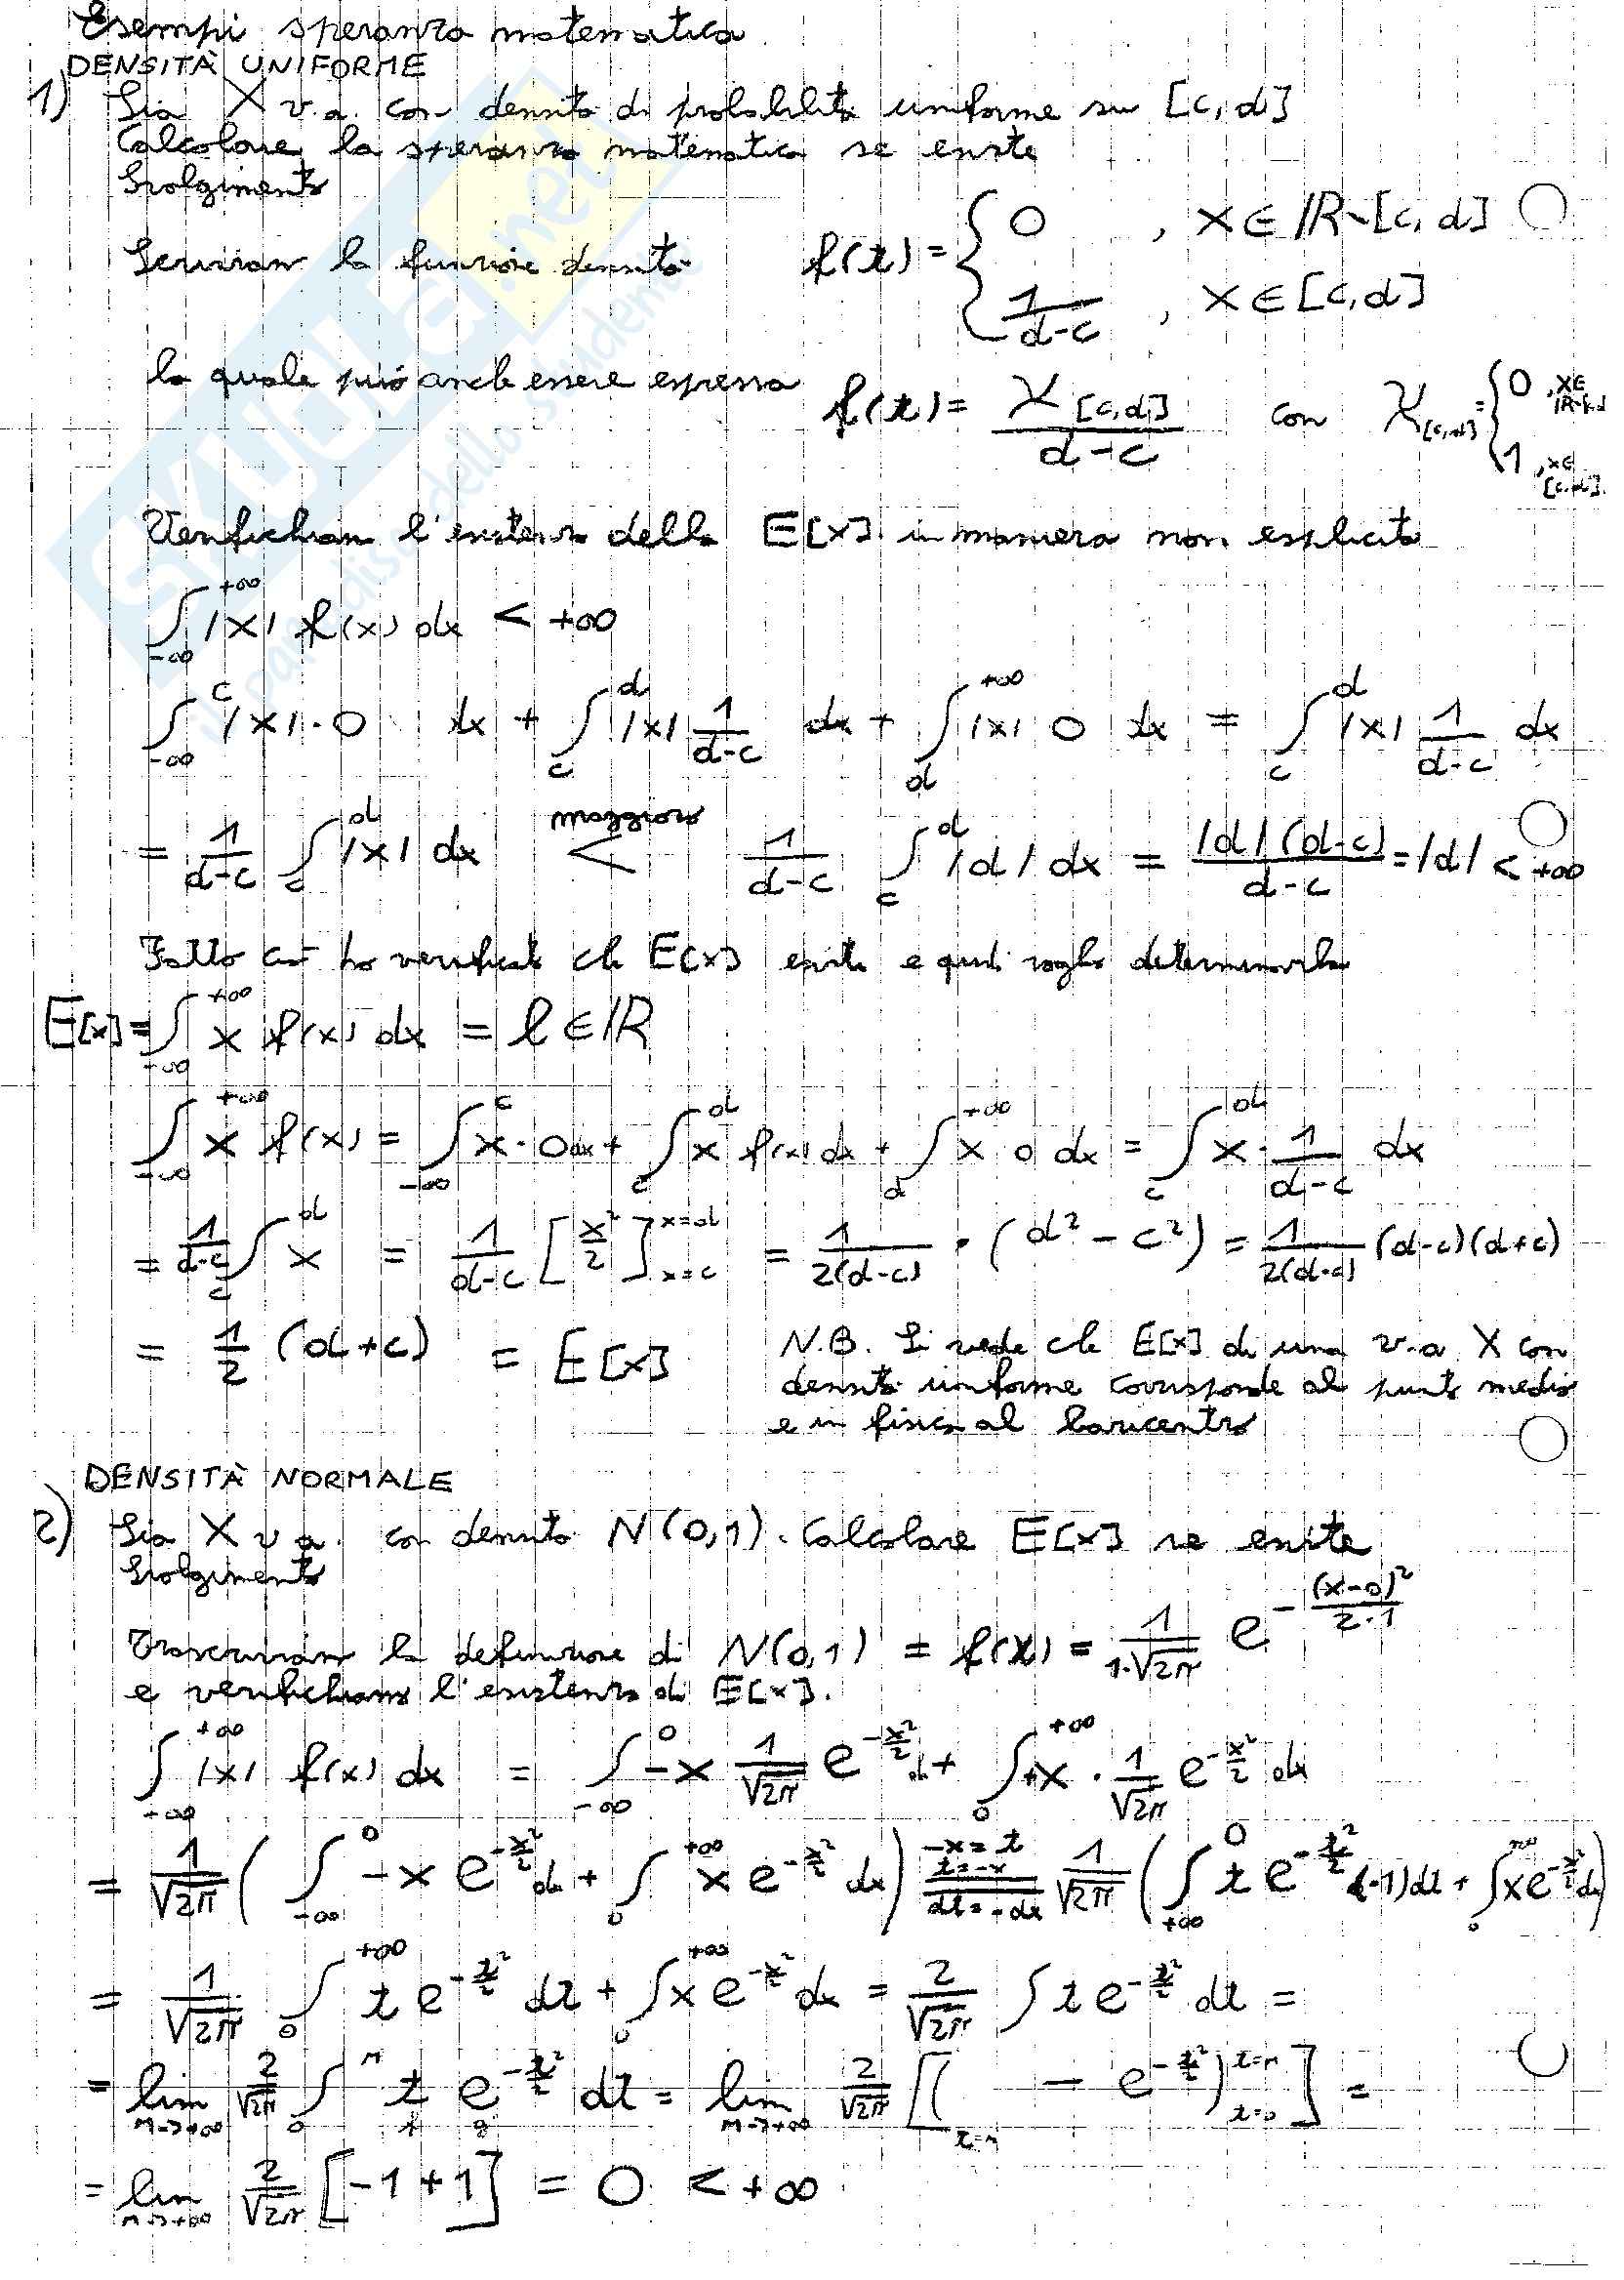 Esempi speranza matematica
DENSITÀ UNIFORME
1) Sia X v.a. con densità di probabilità uniforme su [c,d]
Calcolare la speranza matematica se esiste
Svolgimento
Scriviamo la funzione densità f(t) = { 0 , x∈ℝ∖[c,d]
1/(d-c) , x∈[c,d]
la quale può anche essere espressa f(t) = χ[c,d]/(d-c) con χ[c,d] = { 0 , x∈ ℝ∖[c,d]
1 , x∈ [c,d]
Verifichiamo l'esistenza della E[X] in maniera non esplicita
∫_{-∞}^{+∞} |x| f(x) dx < +∞
∫_{-∞}^{c} |x|·0 dx + ∫_{c}^{d} |x| 1/(d-c) dx + ∫_{d}^{+∞} |x| 0 dx = ∫_{c}^{d} |x| 1/(d-c) dx
= 1/(d-c) ∫_{c}^{d} |x| dx < maggioro 1/(d-c) ∫_{c}^{d} |d| dx = |d|(d-c)/(d-c) = |d| < +∞
Fatto ciò ho verificato che E[X] esiste e quindi voglio determinarla
E[x] = ∫_{-∞}^{+∞} x f(x) dx = l ∈ ℝ
∫_{-∞}^{+∞} x f(x) = ∫_{-∞}^{c} x·0 dx + ∫_{c}^{d} x f(x) dx + ∫_{d}^{+∞} x 0 dx = ∫_{c}^{d} x· 1/(d-c) dx
= 1/(d-c) ∫_{c}^{d} x = 1/(d-c) [x²/2]_{x=c}^{x=d} = 1/(2(d-c)) · (d² - c²) = 1/(2(d-c)) (d-c)(d+c)
= 1/2 (d+c) = E[x]
N.B. Si vede che E[x] di una v.a X con
densità uniforme corrisponde al punto medio
e in fisica al baricentro
DENSITÀ NORMALE
2) Sia X v a. con densità N(0,1). Calcolare E[x] se esiste
Svolgimento
Trascriviamo la definizione di N(0,1) = f(x) = 1/(1·√2π) e^{-(x-0)²/(2·1)}
e verifichiamo l'esistenza di E[x].
∫_{+∞}^{+∞} |x| f(x) dx = ∫_{-∞}^{0} -x 1/√2π e^{-x²/2} dx + ∫_{0}^{+∞} +x · 1/√2π e^{-x²/2} dx
= 1/√2π ( ∫_{-∞}^{0} -x e^{-x²/2} dx + ∫_{0}^{+∞} x e^{-x²/2} dx ) -x=t t=-x dt=-dx 1/√2π ( ∫_{+∞}^{0} t e^{-t²/2} (-1)dt + ∫_{0}^{+∞} x e^{-x²/2} dx )
= 1/√2π ∫_{0}^{+∞} t e^{-t²/2} dt + ∫_{0}^{+∞} x e^{-x²/2} dx = 2/√2π ∫ t e^{-t²/2} dt =
= lim_{n→+∞} 2/√2π ∫_{0}^{n} t e^{-t²/2} dt = lim_{n→+∞} 2/√2π [( - e^{-t²/2})_{t=0}^{t=n}] =
= lim_{n→+∞} 2/√2π [-1+1] = 0 < +∞